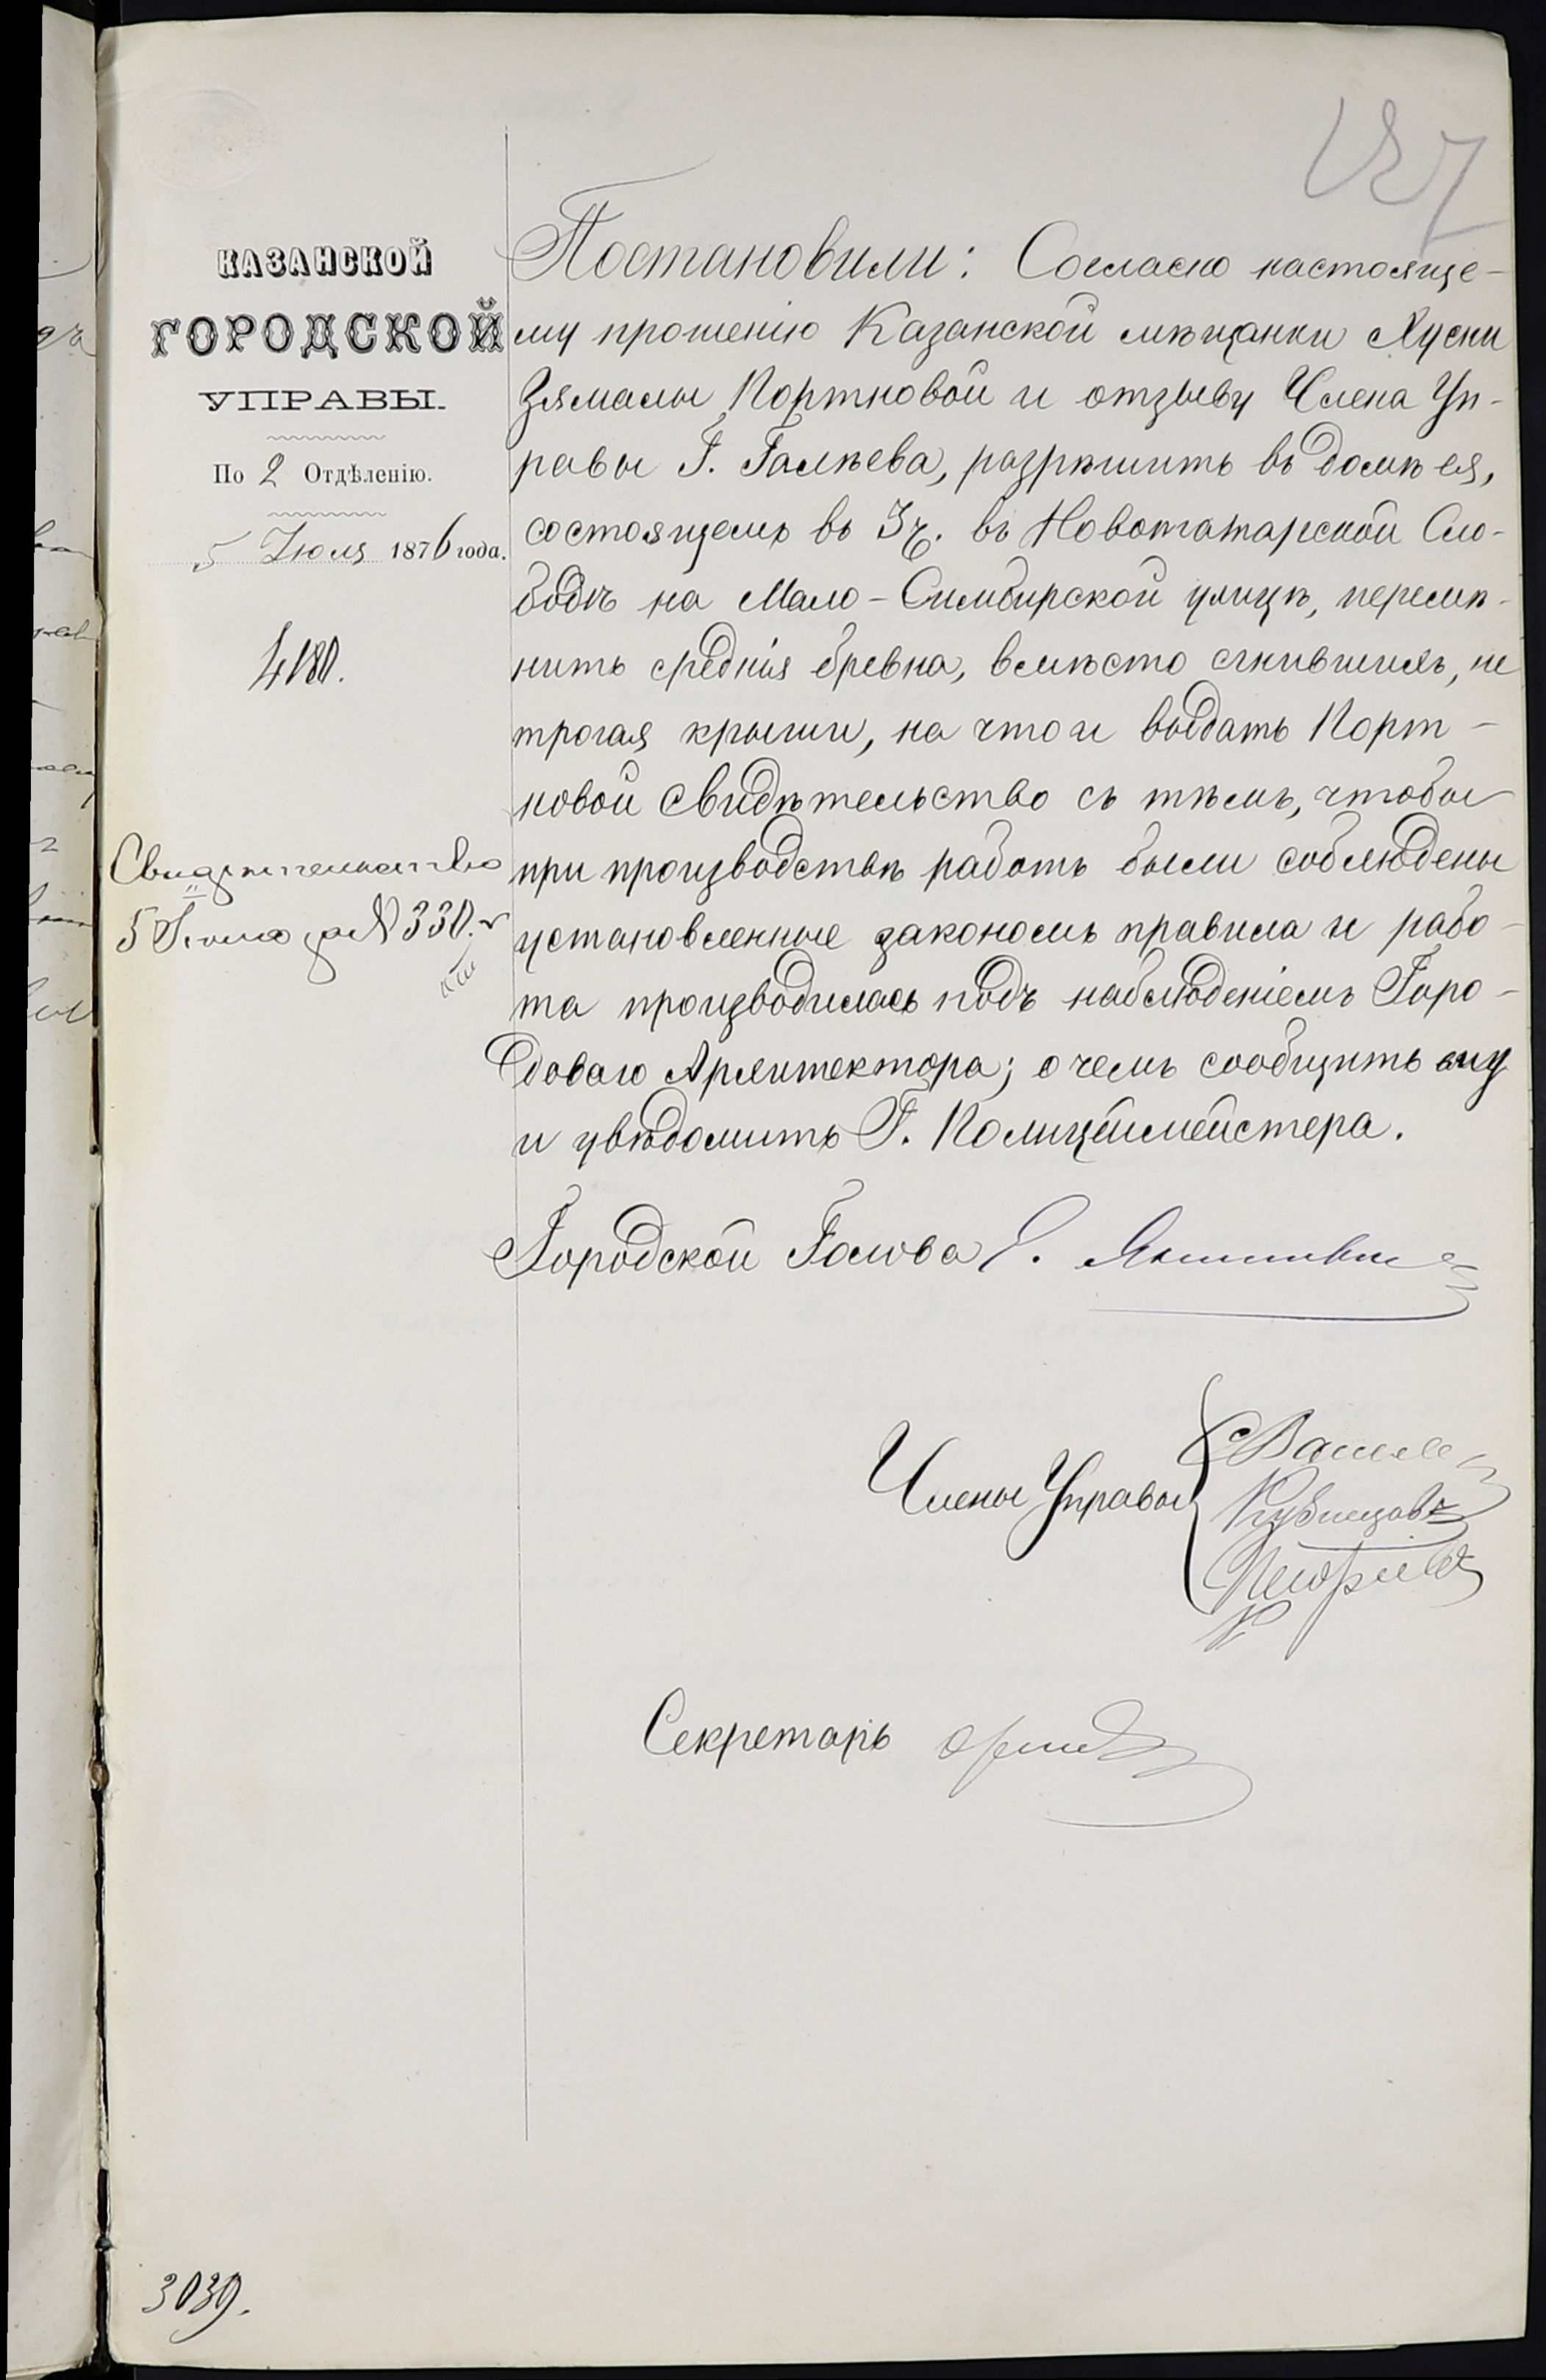 187
КАЗАНСКОЙ
ГОРОДСКОЙ
УПРАВЫ.
По 2 Отдѣленію.
5 Іюля 1876 года.
4180.
Свидѣтельство
5 Іюля за № 330.
Постановили: Согласно настояще-
му прошенію Казанской мѣщанки Хусни
Зямалы Портновой и отзыву Члена Уп-
равы Г. Галѣева, разрѣшить въ домѣ ея,
состоящемъ въ 3 ч. въ Новотатарской Сло-
бодѣ на Мало-Симбирской улицѣ, перемѣ-
нить среднія бревна, вмѣсто сгнившихъ, не
трогая крыши, на что и выдать Порт-
новой свидѣтельство съ тѣмъ, чтобы
при производствѣ работъ были соблюдены
установленные закономъ правила и рабо-
та производилась подъ наблюденіемъ Горо-
доваго Архитектора; о чемъ сообщить ему
и увѣдомить Г. Полицеймейстера.
Городской Голова
Члены Управы
Кузнецовъ
Секретарь
3039.